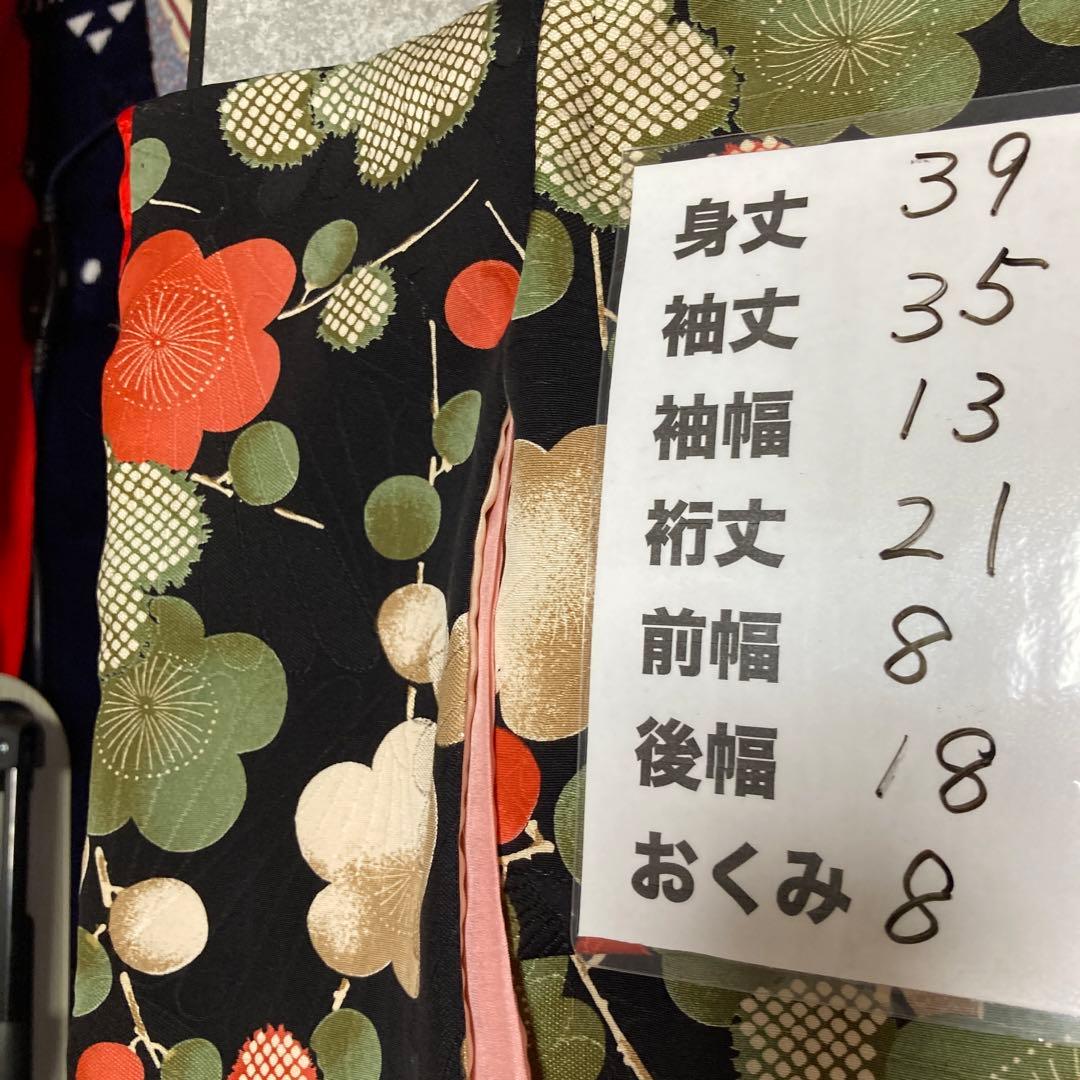 身丈 39
袖丈 35
袖幅 13
裄丈 21
前幅 8
後幅 18
おくみ 8